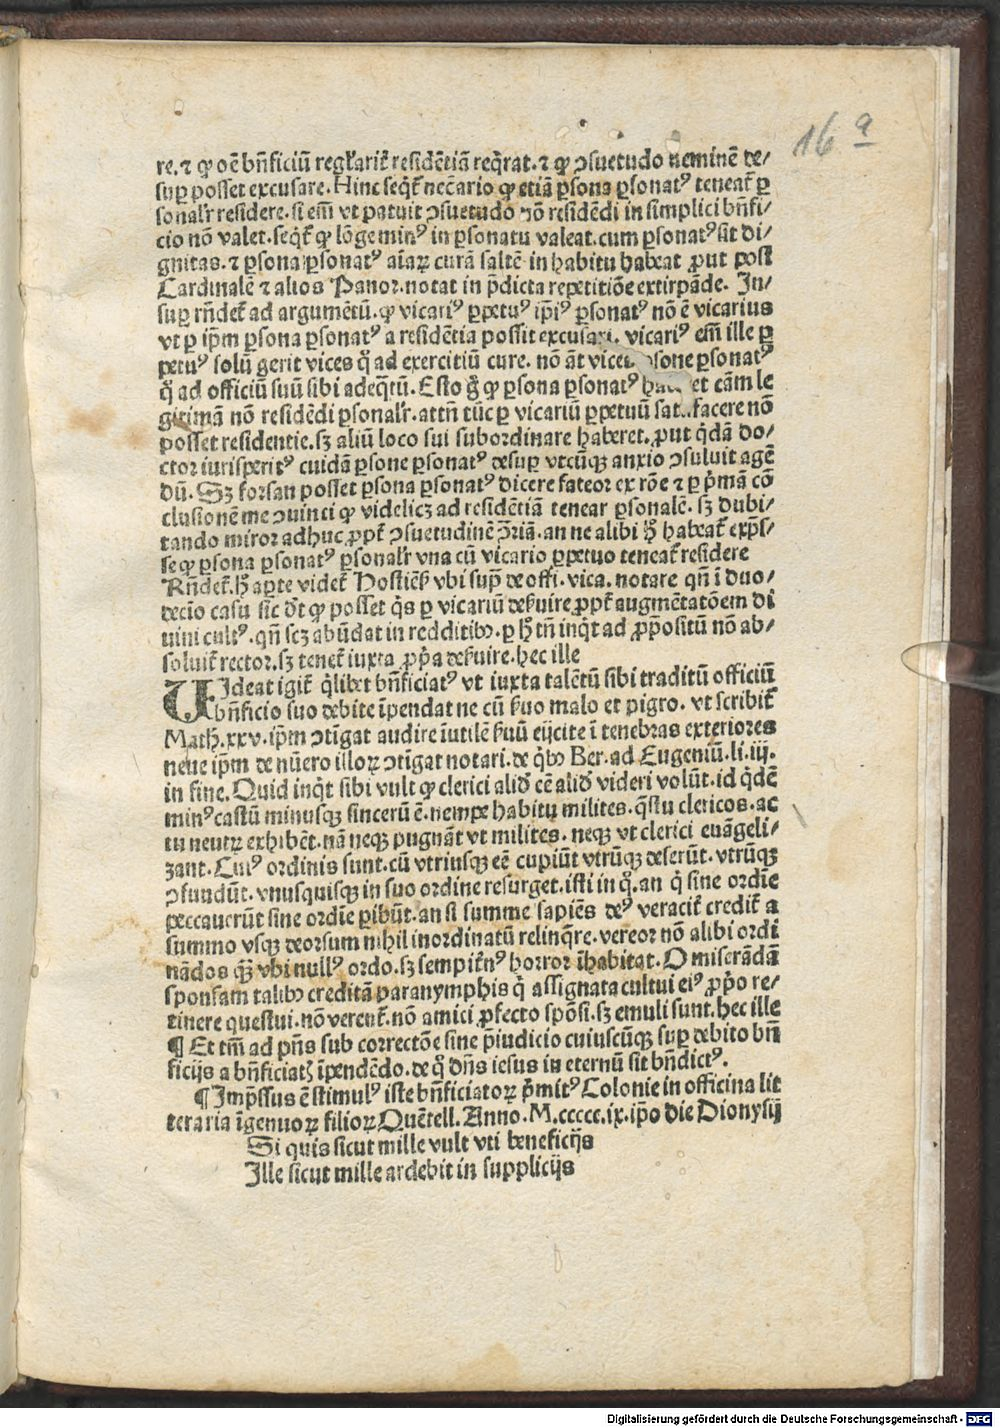 16 a
re. ⁊ ꝙ oē bn̄ficiū regl'arit̄ residētiā req̄rat. ⁊ ꝙ ꝯsuetudo neminē de/
suꝑ posset excusare. Hinc seq̄t̄ nec̄ario ꝙ etiā ꝑsona ꝑsonatꝰ teneat̄ ꝑ
sonal'r residere. si em̄ vt patuit ꝯsuetudo nō residēdi in simplici bn̄fi/
cio nō valet. seq̄t̄ ꝙ lōge minꝰ in ꝑsonatu valeat. cum ꝑsonatꝰ sit di/
gnitas. ⁊ ꝑsona ꝑsonatꝰ aīaꝝ curā saltē in habitu habeat ꝓut post
Cardinalē ⁊ alios Panor. notat in p̄dicta repetitiōe extirpāde. In/
suꝑ rn̄det̄ ad argumētū. ꝙ vicariꝰ ꝑpetuꝰ ip̄iꝰ ꝑsonatꝰ nō ē vicarius
vt ꝑ ip̄m ꝑsona ꝑsonatꝰ a residētia possit excusari. vicariꝰ em̄ ille ꝑ
petuꝰ solū gerit vices q̊ ad exercitiū cure. nō āt vices ꝑsone ꝑsonatꝰ
q̊ ad officiū suū sibi adeq̄tū. Esto g̊ ꝙ ꝑsona ꝑsonatꝰ haberet cām le
gitimā nō residēdi ꝑsonal'r. attn̄ tūc ꝑ vicariū ꝑpetuū satisfacere nō
posset residentie. sꝫ aliū loco sui subordinare haberet. ꝓut q̄dā do/
ctor iurisperitꝰ cuidā ꝑsone ꝑsonatꝰ desuꝑ vtcūqꝫ anxio ꝯsuluit agē
dū. Sꝫ forsan posset ꝑsona ꝑsonatꝰ dicere fateor ex rōe ⁊ ꝑ p̄mā cō
clusionē me ꝯuinci ꝙ videlicꝫ ad residētiā tenear ꝑsonalē. sꝫ dubi/
tando miror adhuc ꝓpt̄ ꝯsuetudinē ꝯ̄riā. an ne alibi h̊ habeat̄ exp̄s/
se ꝙ ꝑsona ꝑsonatꝰ ꝑsonal'r vna cū vicario ꝑpetuo teneat̄ residere
Rn̄det̄. h̊ aꝑte videt̄ Hostiēs̄ vbi sup̄ de offi. vica. notare qn̄ ī duo/
decīo casu sic dt̄ ꝙ posset q̄s ꝑ vicariū des̄uire ꝓpt̄ augmētatōem di
uini cultꝰ. qn̄ scꝫ abūdat in redditibꝰ. ꝑ h̊ tn̄ inq̄t ad ꝓpositū nō ab/
soluit̄ rector. sꝫ tenet̄ iuxta ꝓp̄a des̄uire. hec ille
VIdeat igit̄ q̄libet bn̄ficiatꝰ vt iuxta talētū sibi traditū officiū
bn̄ficio suo debite īpendat ne cū s̄uo malo et pigro. vt scribit̄
Math. xxv. ip̄m ꝯtīgat audire iutilē s̄uū eijcite ī tenebras exteriores
neue ip̄m de nūero illoꝝ ꝯtīgat notari. de q̄bꝰ Ber. ad Eugeniū. li. iij.
in fine. Quid inq̄t sibi vult ꝙ clerici aliđ ēē aliđ videri volūt. id q̄dē
minꝰ castū minusqꝫ sincerū ē. nempe habitu milites. q̄stu clericos. ac
tu neutꝝ exhibēt. nā neqꝫ pugnāt vt milites. neqꝫ vt clerici euāgeli/
zant. Cuiꝰ ordinis sunt. cū vtriusqꝫ eē cupiūt vtrūqꝫ deserūt. vtrūqꝫ
ꝯfundūt. vnusquisqꝫ in suo ordine resurget. isti in q̊. an q̄ sine ordīe
peccauerūt sine ordīe ꝑibūt. an si summe sapiēs deꝰ veracit̄ credit̄ a
summo vsqꝫ deorsum nihil inordinatū relinq̄re. vereor nō alibi ordi
nādos qꝫ̄ vbi nullꝰ ordo. sꝫ sempit̄nꝰ horror īhabitat. O miserādā
sponsam talibꝰ creditā paranymphis q̄ assignata cultui eiꝰ ꝓp̄o re/
tinere questui. nō verent̄. nō amici ꝓfecto spōsi. sꝫ emuli sunt. hec ille
¶ Et tm̄ ad pn̄s sub correctōe sine p̄iudicio cuiuscūqꝫ suꝑ debito bn̄
ficijs a bn̄ficiatꝭ īpendēdo. de q̊ dn̄s iesus in eternū sit bn̄dictꝰ.
¶ Imp̄ssus ē stimulꝰ iste bn̄ficiatoꝝ p̄mitꝰ Colonie in officina lit
teraria īgenuoꝝ filioꝝ Quētell. Anno. M. ccccc. ix. ip̄o die Dionysij
Si quis sicut mille vult vti beneficijs
Ille sicut mille ardebit in supplicijs
Digitalisierung gefördert durch die Deutsche Forschungsgemeinschaft - DFG